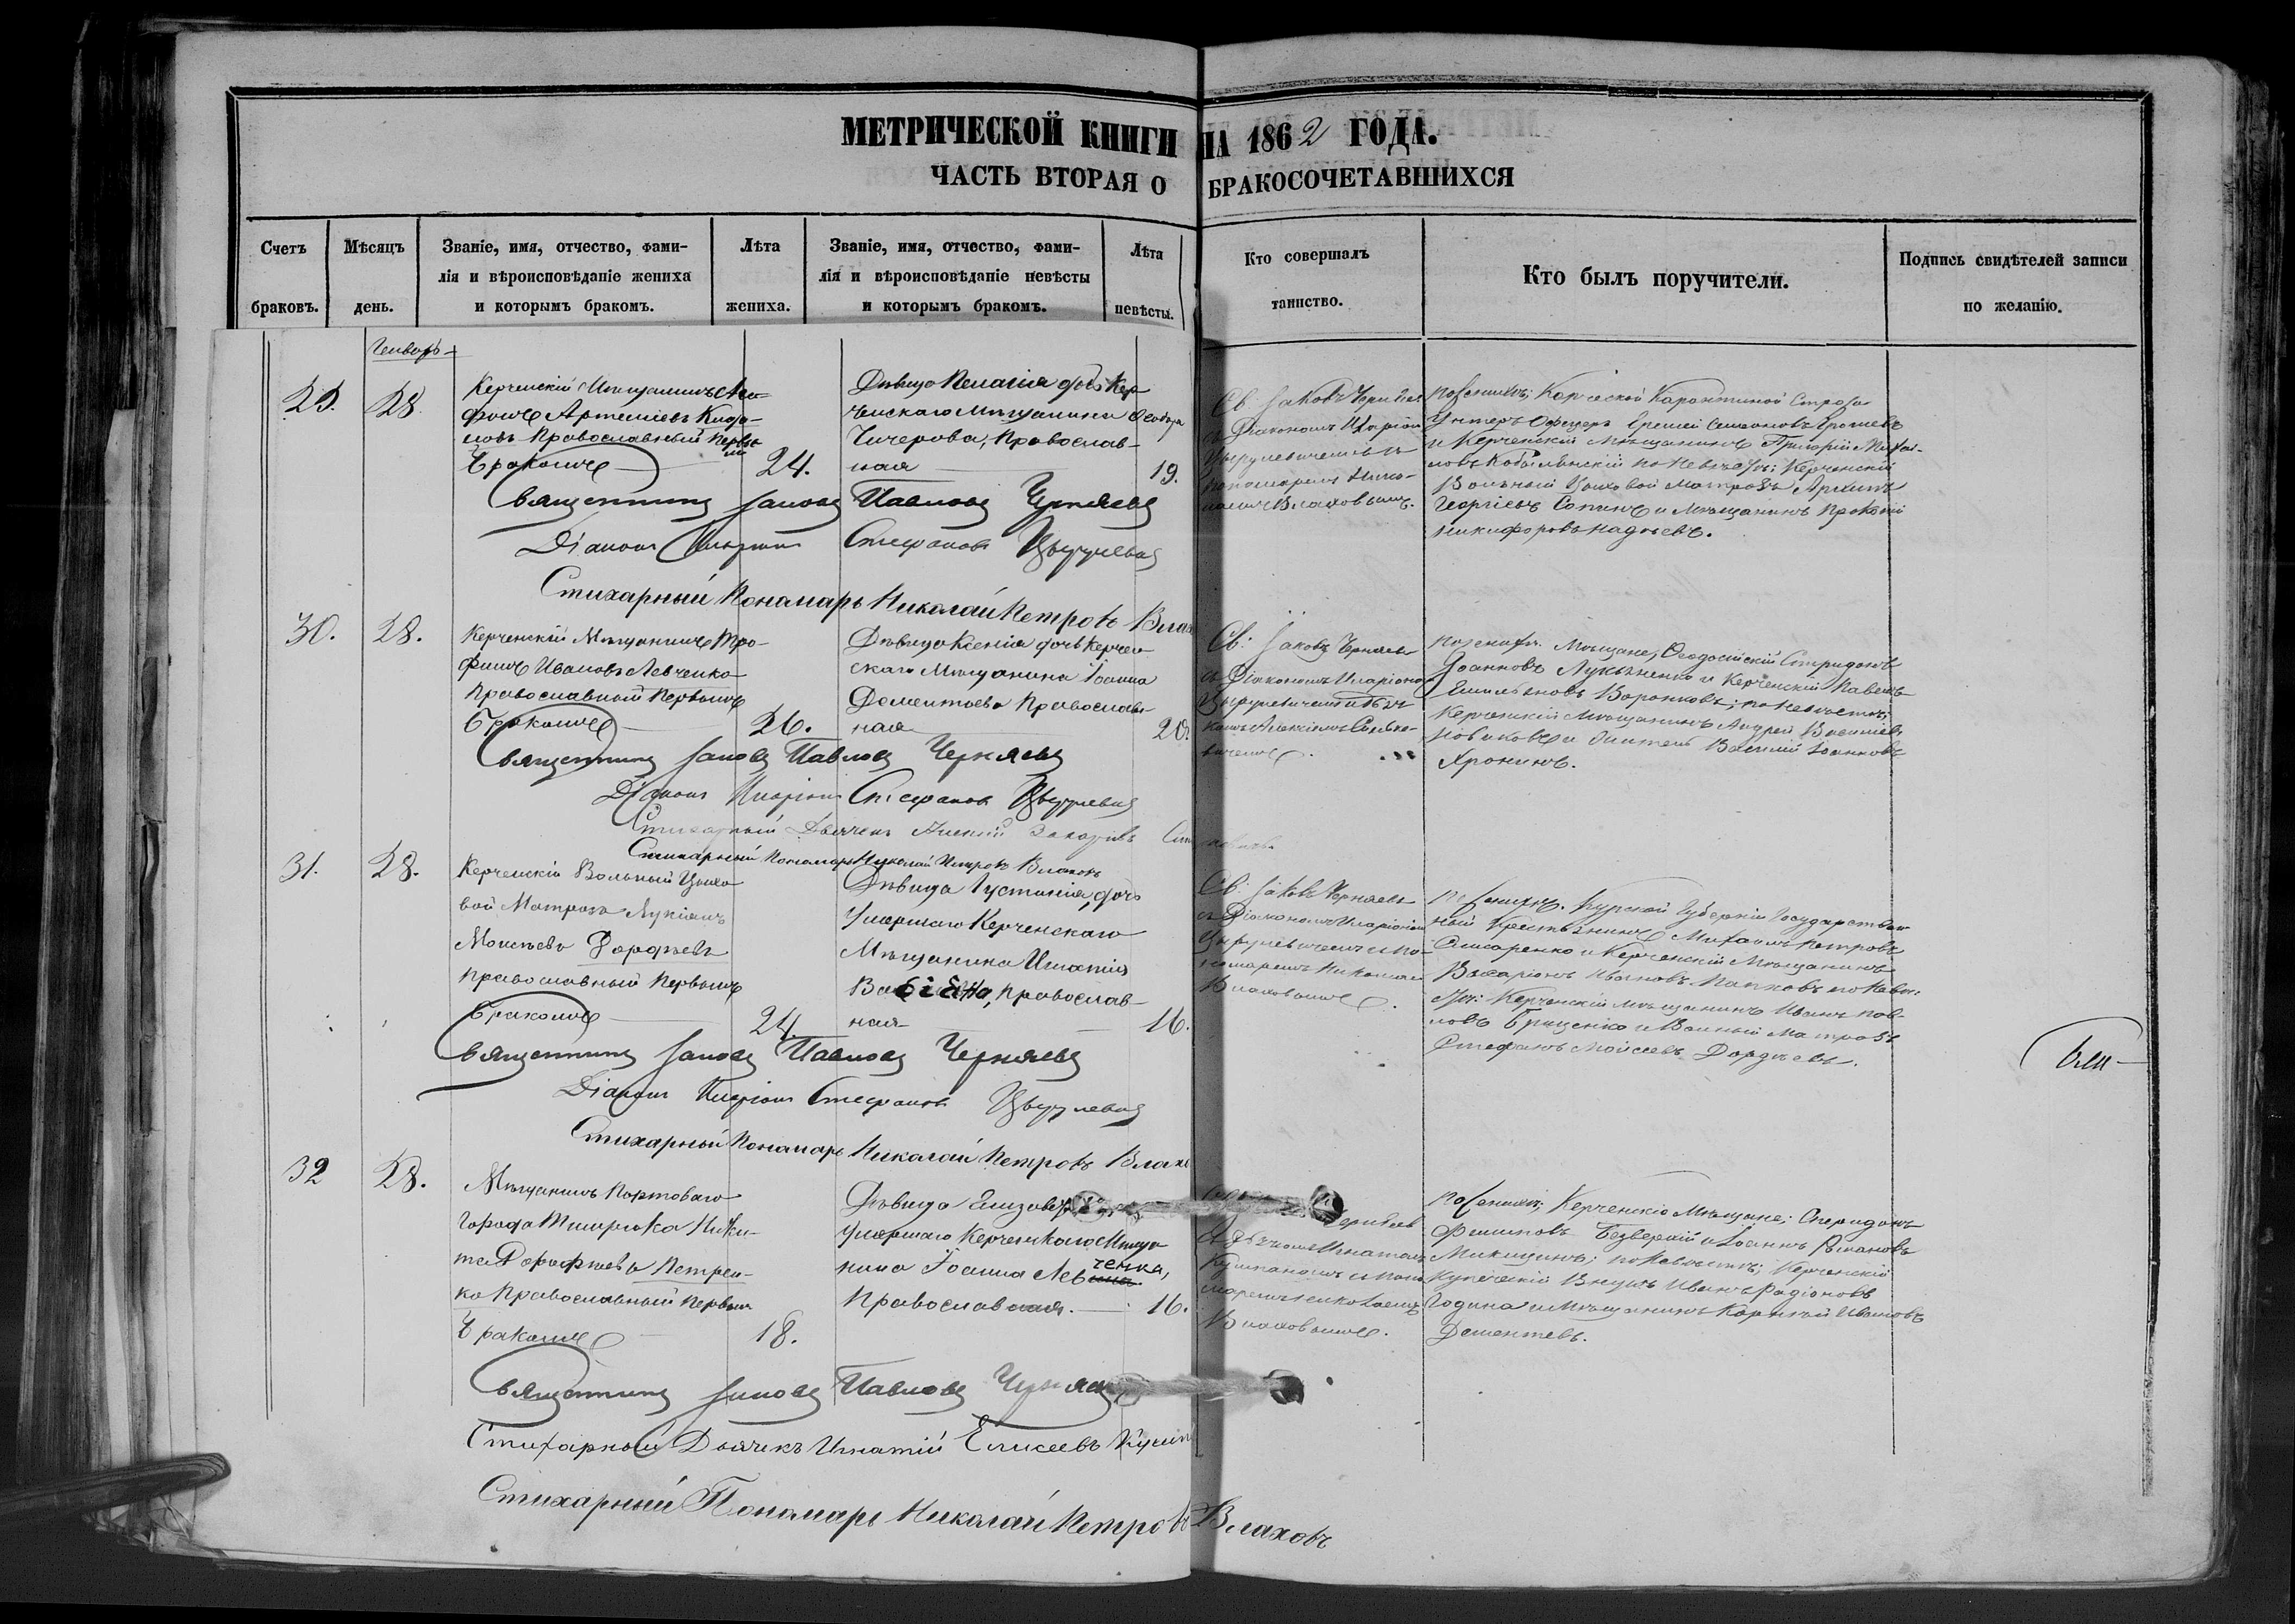 МЕТРИЧЕСКОЙ КНИГИ НА 1862 ГОДА.
ЧАСТЬ ВТОРАЯ О БРАКОСОЧЕТАВШИХСЯ
Счетъ браковъ.
Мѣсяцъ день.
Званіе, имя, отчество, фами-
лія и вѣроисповѣданіе жениха
и которымъ бракомъ.
Лѣта жениха.
Званіе, имя, отчество, фами-
лія и вѣроисповѣданіе невѣсты
и которымъ бракомъ.
Лѣта невѣсты.
Кто совершалъ
таинство.
Кто былъ поручители.
Подпись свидѣтелей записи
по желанію.
Генварь
29.
28.
Керченскій Мѣщанинъ
Артеміевъ
Православный Первы
мъ
бракомъ
24.
Дѣвица Пелагія дочь Кер
ченскаго Мѣщанина Ѳеодора
Чичерова, Православ-
ная
19.
Св: Іаковъ
съ Діакономъ Иларіон
Цырулевичемъ и
пономаремъ Нико-
лаемъ Влаховымъ.
По женихѣ; Керческой Карантинной Стражи
Унтеръ Офицеръ Семеоновъ
и Керченскій Мѣщанинъ Григорій Михаи-
ловъ Кобылянскій по невѣстѣ: Керченскій
Вольный Цеховой Матрозъ Архипъ
Георгіевъ и Мѣщанинъ Прокопій
Никифоровъ Надѣевъ.
Священникъ Іаковъ Павловъ Черняевъ
Діаконъ Иларіонъ Стефановъ Цырулевичъ
Стихарный Пономарь Николай Петровъ Влах
30.
28.
Керченскій Мѣщанинъ Тро-
фимъ Ивановъ Левченко
Православный Первымъ
бракомъ
26.
Дѣвица Ксенія дочь Керчен
скаго Мѣщанина Іоанна
Дементьева Православ-
ная
20.
Св: Іаковъ Черняевъ
съ Діакономъ Иларіоно
Цырулевичемъ и Дья
комъ Алексіемъ
По женихѣ. Мѣщане, Ѳеодосійскій Спиридонъ
Іоанновъ Лукьяненко и Керченскій Павелъ
Емильяновъ Воронковъ; по невѣстѣ;
Керченскій Мѣщанинъ Андрей Василіевъ
Новиковъ и Василій Іоанновъ
Хронинъ.
Священникъ Іаковъ Павловъ Черняевъ
Діаконъ Иларіонъ Стефановъ Цырулевичъ
Стихарный Дьячекъ Алексій
Стихарный Пономарь Николай Петровъ Влаховъ
31.
28.
Керченскій Вольный Цехо
вой Матрозъ Лукіанъ
Моисеевъ Дордѣевъ
Православный Первымъ
бракомъ
24.
Дѣвица Іустинія, дочь
умершаго Керченскаго
Мѣщанина Игнатія
Православ-
ная
16.
Св: Іаковъ Черняевъ
съ Діакономъ Иларіоном
Цырулевичемъ и По-
номаремъ Николаем
Влаховымъ.
По женихѣ. Курской Губерніи Государствен
ный Крестьянинъ Михаилъ Петровъ
и Керченскій Мѣщанинъ
Ивановъ по невѣс-
тѣ: Керченскій Мѣщанинъ Иванъ Пав-
ловъ Гриценко и Вольный Матрозъ
Стефанъ Моисеевъ Дордѣевъ.
Священникъ Іаковъ Павловъ Черняевъ
Діаконъ Иларіонъ Стефановъ Цырулевичъ
Стихарный Пономарь Николай Петровъ Влахо
32
28.
Мѣщанинъ Портоваго
Города Темрюка Ники-
та Дорофѣевъ Петрен-
ко Православный Первым
бракомъ
18.
Дѣвица Елизавета
умершаго Керченскаго Мѣща
нина Іоанна Левченка,
Православная.
16.
Влаховымъ.
По женихѣ; Керченскіе Мѣщане; Спиридонъ
Безверхій и Іоаннъ Романовъ
Микишинъ; по невѣстѣ; Керченскій
Купеческій Внукъ Иванъ Радіоновъ
Година и Мѣщанинъ Корнилій Ивановъ
Дементьевъ.
Священникъ Іаковъ Павловъ Черняевъ
Стихарный Дьячекъ Игнатій Елисеевъ
Стихарный Пономарь Николай Петровъ Влаховъ